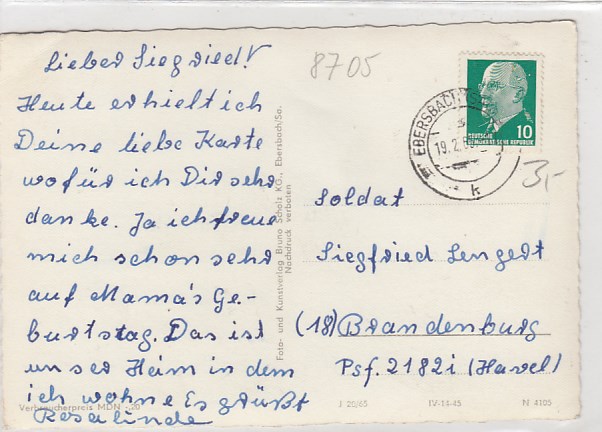 Lieber Siegfried!
Heute erhielt ich
Deine liebe Karte
wofür ich Dir sehr
danke. Ja ich freue
mich schon sehr
auf Mama's Ge-
burtstag. Das ist
unser Heim in dem
ich wohne Es grüßt
Rosalinde
Verbraucherpreis MDN -,20
Foto- und Kunstverlag Bruno Scholz KG., Ebersbach/Sa.
Nachdruck verboten
8705
EBERSBACH
19.2.
k
10
DEUTSCHE
DEMOKRATISCHE REPUBLIK
3,-
Soldat
Siegfried Lengert
(18) Brandenburg
Psf. 2182i (Havel)
J 20/65
IV-14-45
N 4105